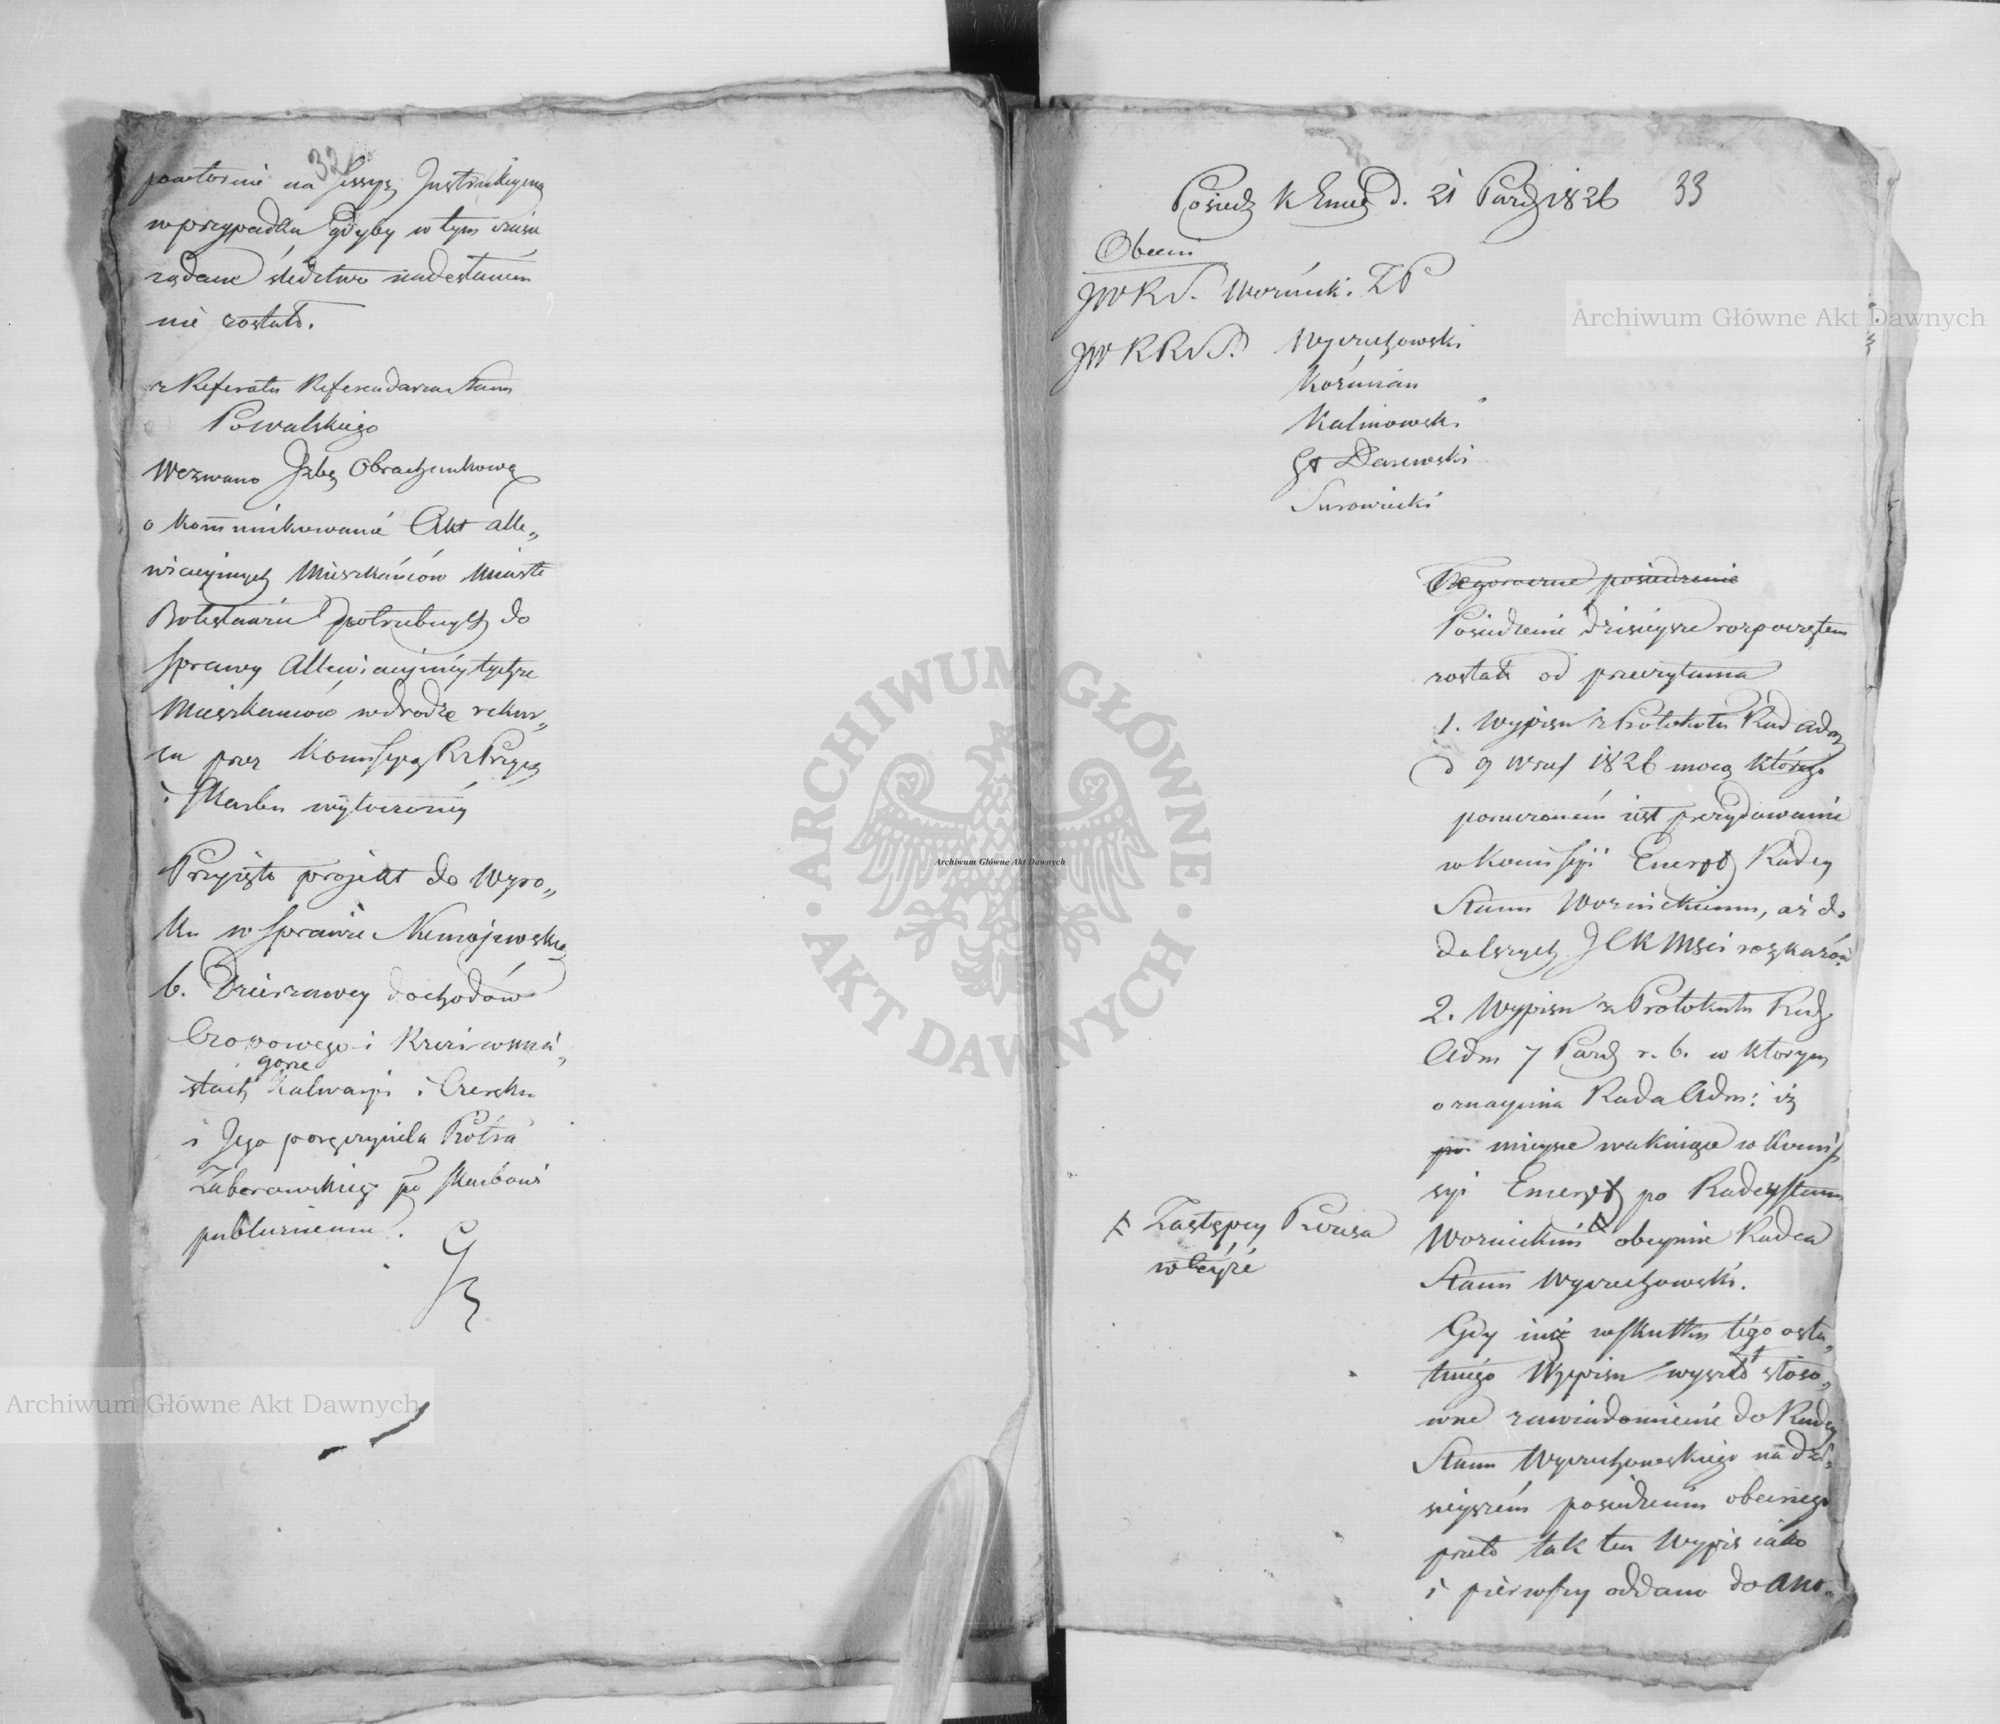 32
powtórnie na Sessyą Instrukcyiną
w przypadku gdyby w tym czasie
żądane śledztwo nadesłaném
nie zostało.
z Referatu Referendarza Stanu
Powalskiego
Wezwano Jzbę Obrachunkową
o kommunikowanie Akt alle„
wiacyinych Mieszkańców Miasta
Bolesławia potrzebnych do
sprawy Allewiacyinéy tychże
Mieszkańców w drodze rekur„
su przez Kommissyą Rz Przych
i Skarbu wytoczonéy
Przyięto projekt do Wyro„
ku w sprawie Niemojewskiego
b. Dzierzawcy dochodów
Czopowego i
gorze
Kalwaryi i Czersku
i Jego poręczyciela Piotra
Zaborowskiego po Skarbowi
publicznemu.
33
Posiedz K Emer d. 21 Paźd 1826
Obecni
JW R S. Woźnicki. Z P
JW R R S S. Wyczechowski
Koźmian
Kalinowski
Surowiecki
Tegoroczne posiedzenie
Posiedzenie dzisieysze rozpoczętem
zostało od przeczytania
1. Wypisu z Protokołu Rad Adm
d 9 Wrześ 1826 mocą którego
poruczoném iest prezydowanie
w Kommissyi Emeryt Radcy
Stanu Woźnickiemu, aż do
dalszych J C K Mści rozkazów.
2. Wypisu z Protokołu Rady
Adm 7 Paźd r. b. w którym
oznaymia Rada Adm: iż
po mieysce wakuiące w Kommis
syi Emeryt po Radcy Stanu
Woźnickim # obeymie Radca
Stanu Wyczechowski.
# Zastępcy Prezesa
w teyże
Gdy iuż w skutku tégo osta„
tniégo Wypisu wyszło stoso„
wne zawiadomienie do Radcy
Stanu Wyczechowskiego na dzi„
sieyszém posiedzeniu obecnego
przeto tak ten Wypis iako
i pierwszy oddano do Akt„
Archiwum Główne Akt Dawnych
Archiwum Główne Akt Dawnych
Archiwum Główne Akt Dawnych
ARCHIWUM GŁÓWNE · AKT DAWNYCH ·